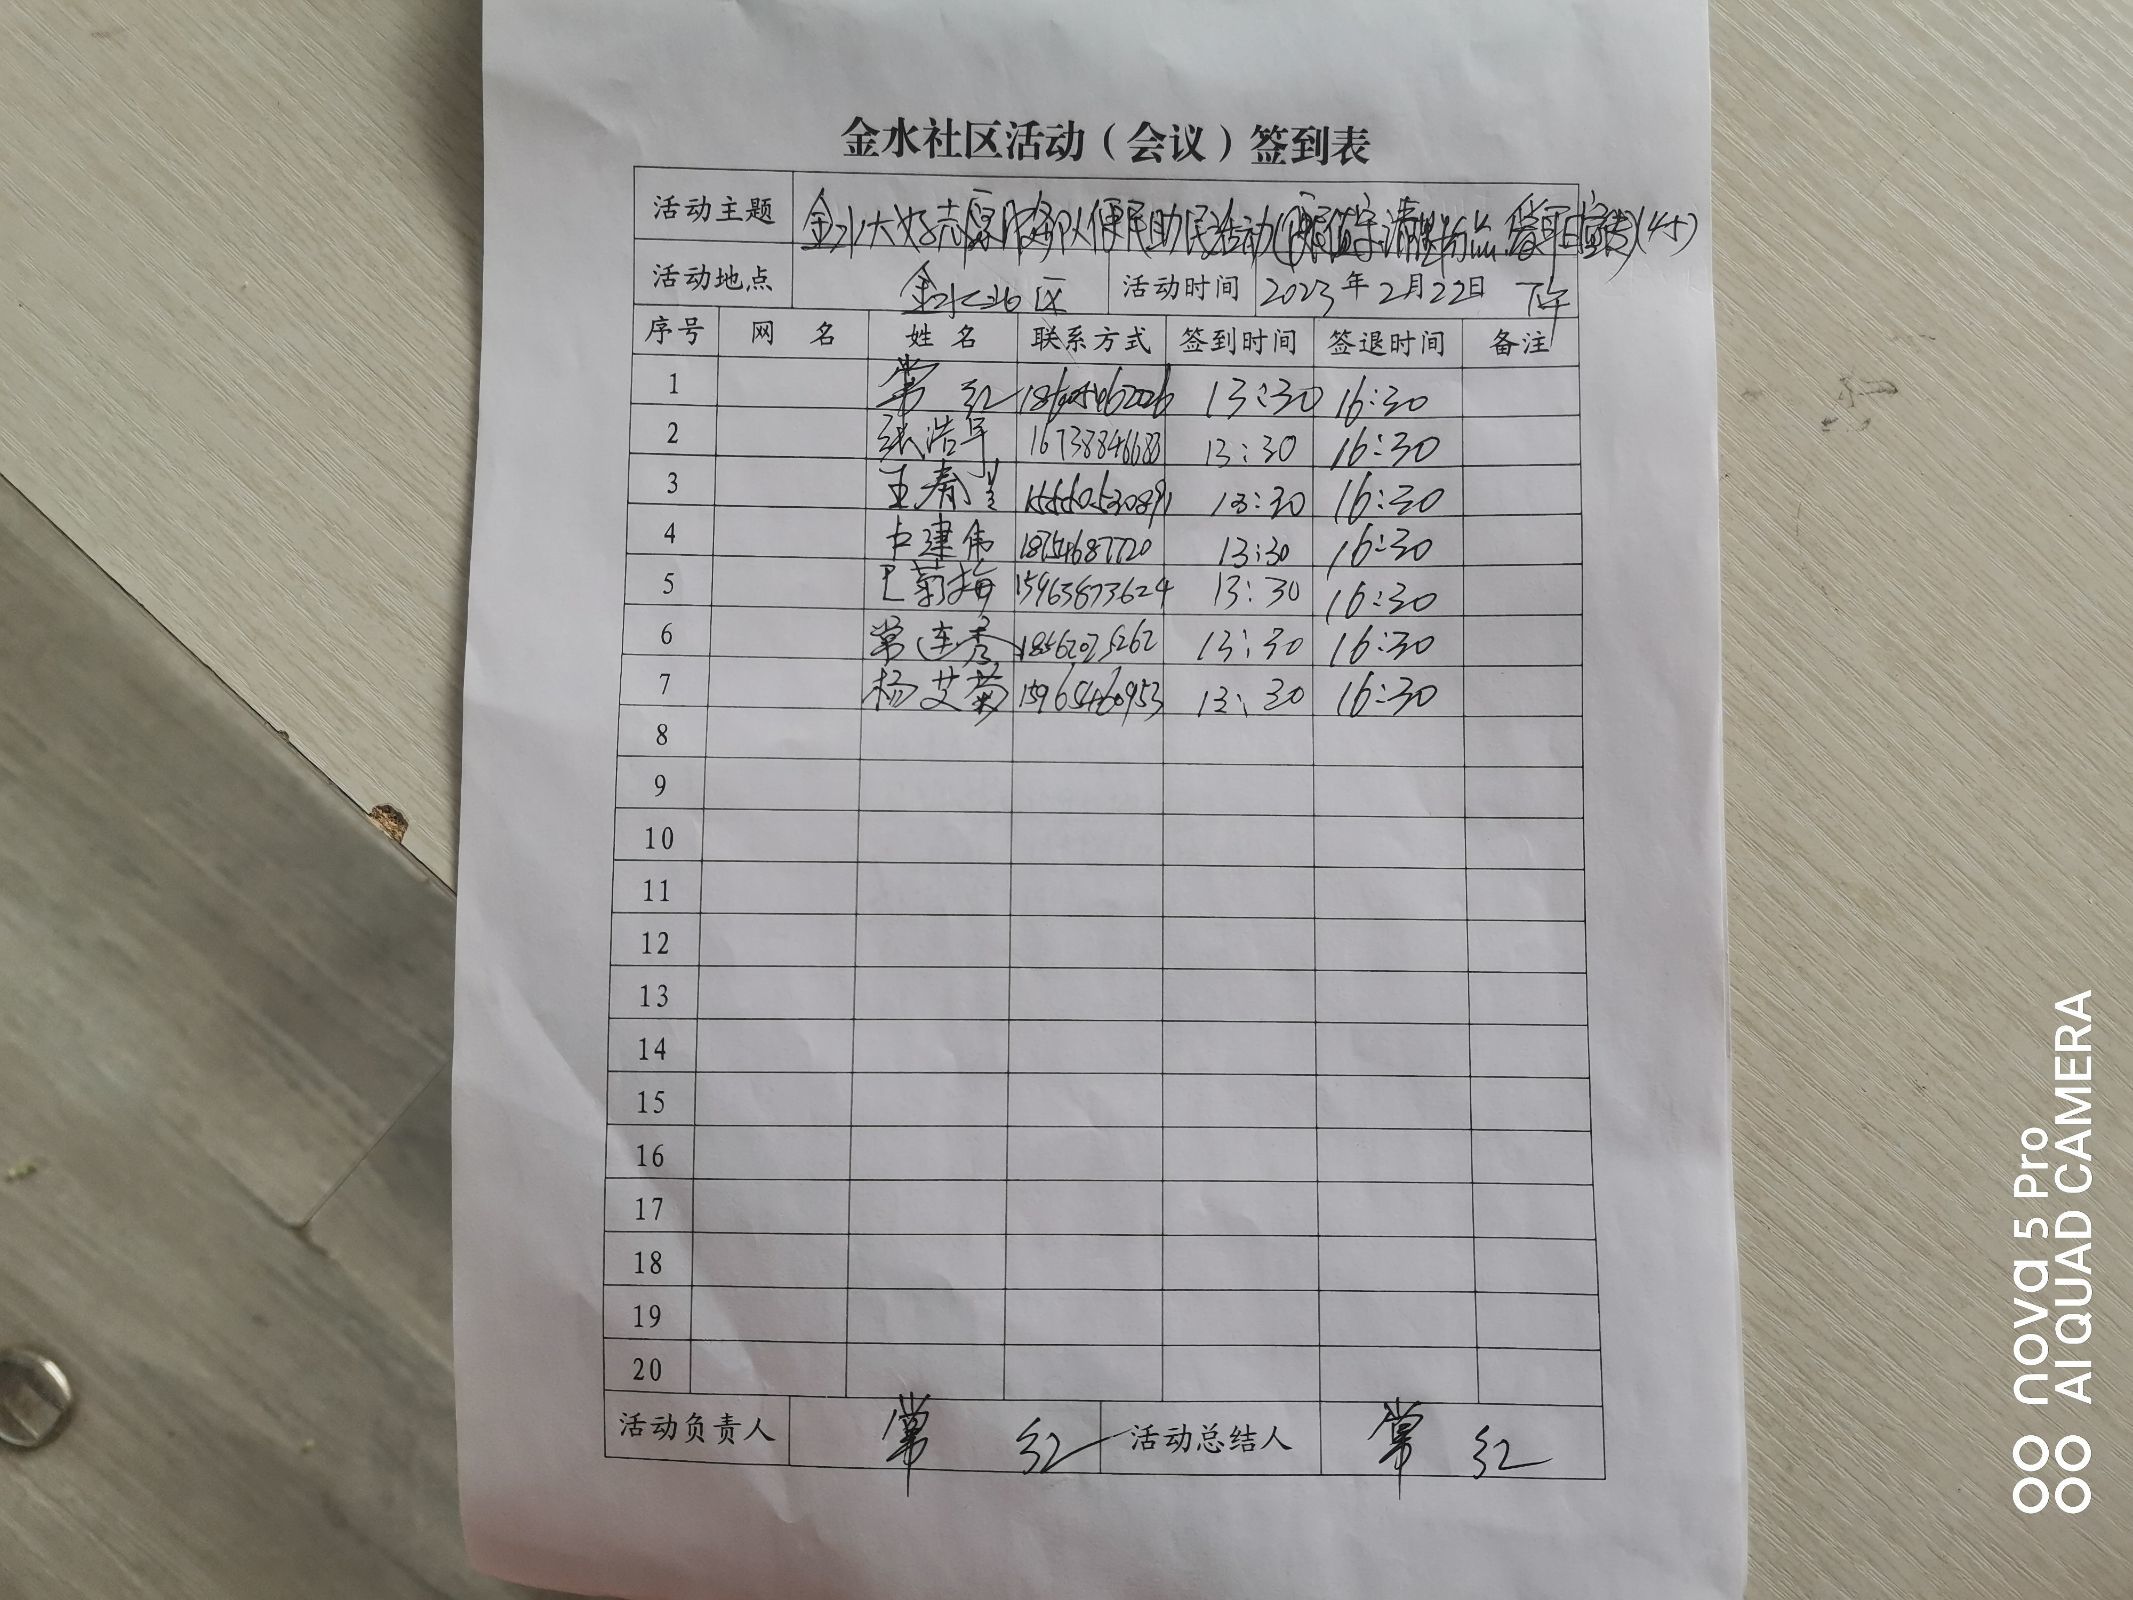 金水社区活动（会议）签到表
活动主题 金水大好志愿服务队便民助民活动
活动地点 金水社区 活动时间 2023年2月22日 下午
序号 网 名 姓 名 联系方式 签到时间 签退时间 备注
1 常 红 13:30 16:30
2 张浩军 16738846688 13:30 16:30
3 王春兰 13:30 16:30
4 卢建伟 18754687720 13:30 16:30
5 巴菊梅 15963873624 13:30 16:30
6 常连秀 18562025262 13:30 16:30
7 杨艾菊 15965460953 13:30 16:30
8
9
10
11
12
13
14
15
16
17
18
19
20
活动负责人 常 红 活动总结人 常 红
nova 5 Pro
AI QUAD CAMERA